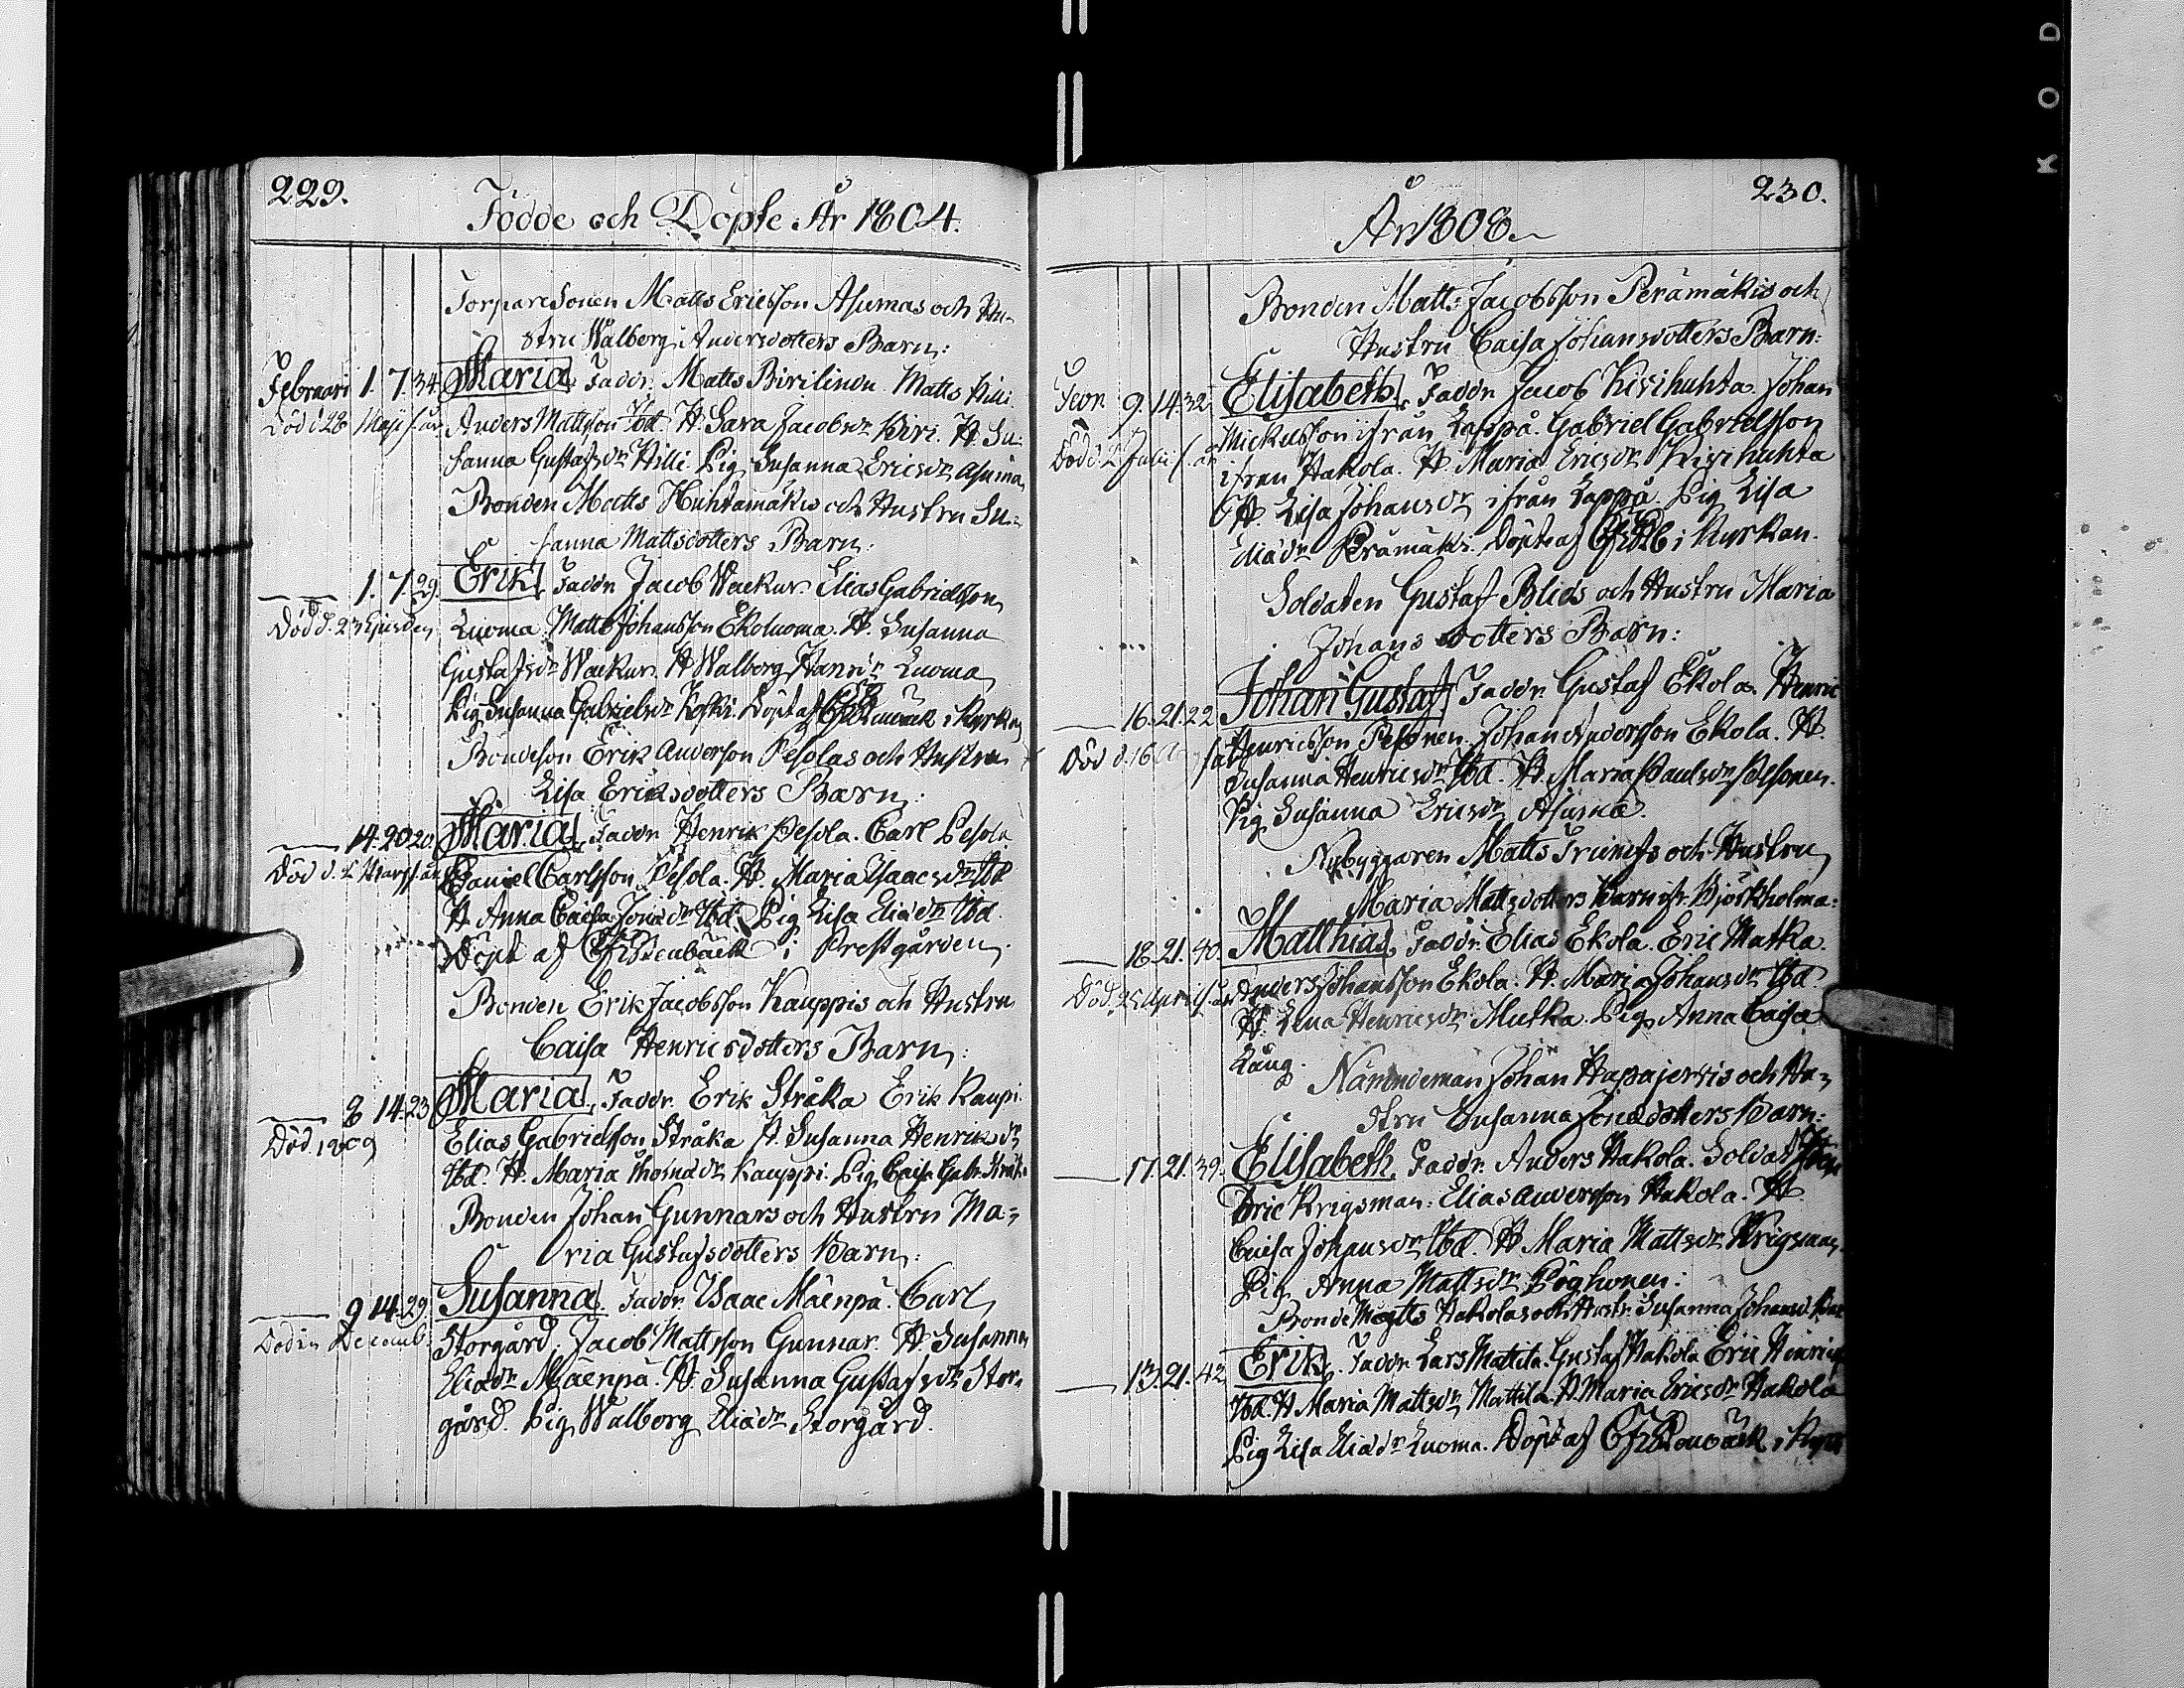 229.
Födde och Döpte År 1804.
Torparesonen Matts Ericsson Asumas och Hu-
stru Walborg Andersdotters Barn:
Februari 1. 7. 34. Maria. Faddr. Matts Birilinon. Matts Hilli.
Död d 28 Maji s. år. Anders Mattsson Ibd. H. Sara Jacobsdr Kiri. H. Su-
sanna Gustafsdr Hilli. Pig. Susanna Ericsdr Asuma
Bonden Matts Huhtamäkis och Hustru Su-
sanna Mattsdotters Barn:
1. 7. 29. Erik. Faddr Jacob Wackur. Elias Gabrielsson
Död d. 23
Luoma. Matts Johansson Ekoluoma. H. Susanna
Gustafsdr Wackur. H Walborg Hansdr Luoma
Pig Susanna Gabrielsdr Koski. Döpt af i Kyrkan
Bondeson Erik Anderson Pesolas och Hustru
Lisa Eriksdotters Barn:
14. 20 20. Maria. Faddr Henrik Pesola. Carl Pesola
Död d. Mars s. år
Daniel Carlsson Pesola. H. Maria Isaacsdr Ibd
H Anna Caisa Jonædr Ibd. Pig Lisa Eliædr Ibd.
Döpt af i Prestgården.
Bonden Erik Jacobsson Kauppis och Hustru
Caisa Henricsdotters Barn:
8 14. 23 Maria. Faddr. Erik Stråka Erik Kaupi.
Död. 1809
Elias Gabrielsson Stråka H. Susanna Henriksdr
Ibd. H. Maria Thomædr Kauppi. Pig Caisa Gabr.
Bonden Johan Gunnars och Hustru Ma-
ria Gustafsdotters Barn:
9 14. 29. Susanna. Faddr. Isaac Mäenpä. Carl
Död in Decemb.
Storgård. Jacob Mattsson Gunnar. H. Susanna
Eliædr Mäenpä. H. Susanna Gustafsdr Stor-
gård. Pig Walborg Eliædr Storgård.
230.
År 1808.
Bonden Matts Jacobsson Perämäkis och
Hustru Caisa Johansdotters Barn:
Febr. 9. 14. 32. Elisabeth. Faddr Jacob Kirihuhta. Johan
Mickelsson ifrån Lappå. Gabriel Gabrielsson
Död d 2 Julii s. år
ifrån Hakola. H. Maria Ericsdr Kirihuhta
H. Lisa Johansdr ifrån Lappå. Pig Lisa
Eliædr Perämäki. Döpt af i Kyrkan.
Soldaten Gustaf Blids och Hustru Maria
Johansdotters Barn:
16. 21. 22 Johan Gustaf Faddr Gustaf Ekola. Henric
Henricsson Pesonen. Johan Andersson Ekola. H.
Död d. 16
Susanna Henricsdr Ibd. H. Maria Paulsdr Pesonen.
Pig Susanna Ericsdr Asuma.
Nybyggaren Matts Triumfs och Hustru
Maria Mattsdotters Barn ifr. Björkholma:
18. 21. 40. Matthias. Faddr. Elias Ekola. Eric Matka
Död. 25 April s. år
Anders Johansson Ekola. H. Maria Johansdr Ibd.
H. Lena Henricsdr Mutka. Pig Anna Caisa
Lång.
Nämndeman Johan Hapajervis och Hu-
stru Susanna Jonædotters Barn:
17. 21. 39. Elisabeth. Faddr. Anders Hakola. Soldat
Eric Krigsman. Elias Andersson Hakola. H.
Caisa Johansdr Ibd. H Maria Mattsdr Krigsman
Pig Anna Mattsdr Böghonen:
Bonde Matts Hakolas och Hustr. Susanna Johansd.
13. 21. 42 Erik. Faddr Lars Mattila. Gustaf Hakola Eric
Ibd. H Maria Mattsdr Mattila H. Maria Ericsdr Hakola
Pig Lisa Eliædr Luoma. Döpt af
KOD